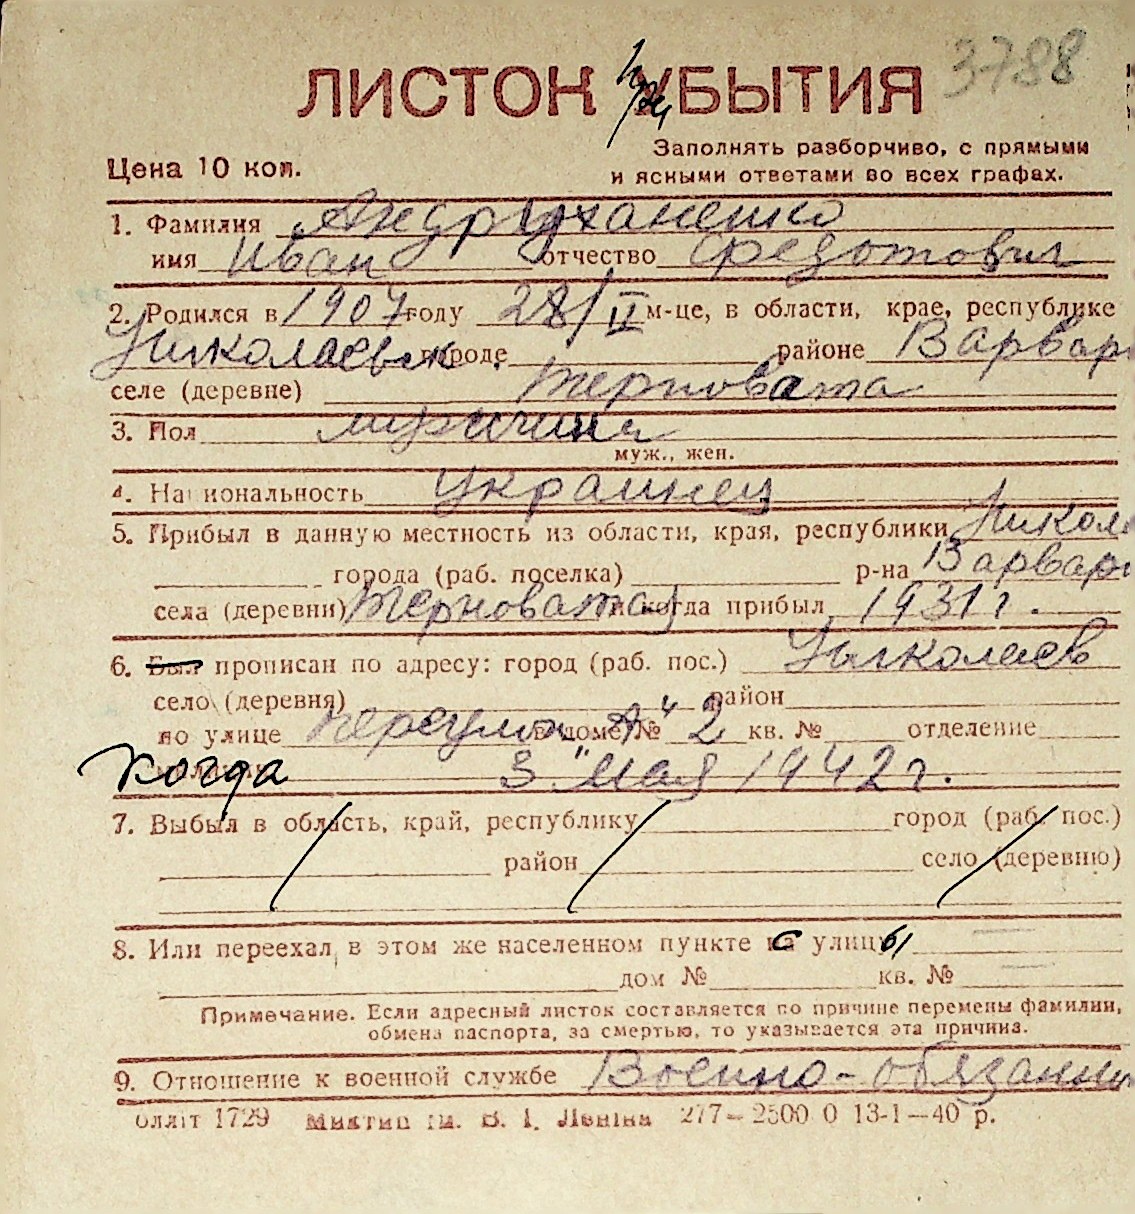 3788
ЛИСТОК при УБЫТИЯ
Цена 10 коп.
Заполнять разборчиво, с прямыми
и ясными ответами во всех графах.
1. Фамилия Андрюханенко
имя Иван отчество Федотович
2. Родился в 1907 году 28/II м-це, в области, крае, республике
Николаевск. городе районе Варвар
селе (деревне) Терновата
3. Пол мужчина
муж., жен.
4. Национальность украинец
5. Прибыл в данную местность из области, края, республики Никол
города (раб. поселка) р-на Варвар
села (деревни) Терноватая и когда прибыл 1931 г.
6. Был прописан по адресу: город (раб. пос.) Николаев
село (деревня) район
по улице в доме № 2 кв. № отделение
когда 3 " мая 1942 г.
7. Выбыл в область, край, республику город (раб. пос.)
район село (деревню)
8. Или переехал в этом же населенном пункте с улицы
дом № кв. №
Примечание. Если адресный листок составляется по причине перемены фамилии,
обмена паспорта, за смертью, то указывается эта причина.
9. Отношение к военной службе Военно-обязанны
Обллiт 1729 Миктип iм. В. I. Ленiна 277—2500 0 13-1—40 р.